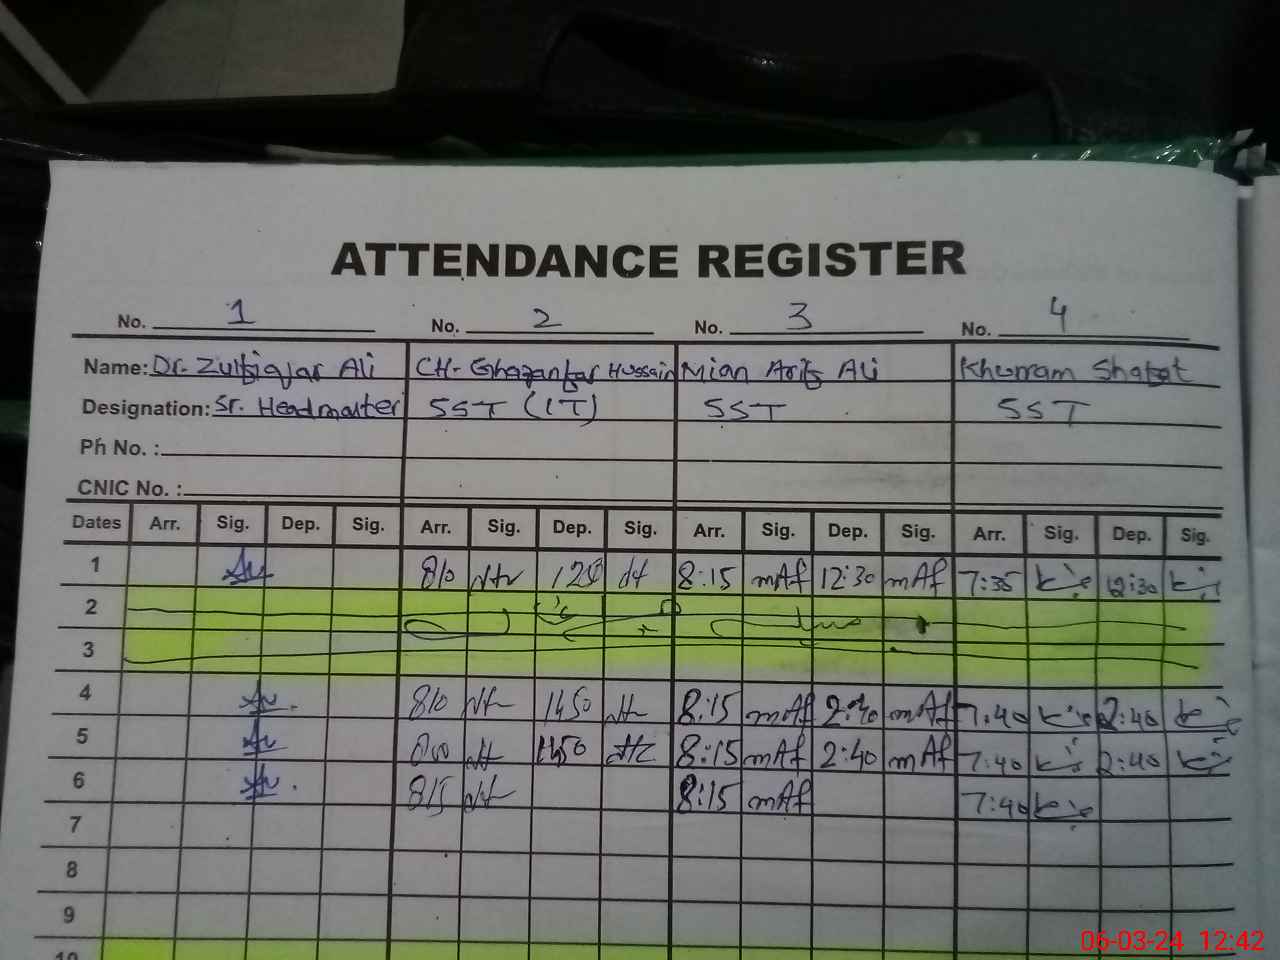 ATTENDANCE REGISTER
No. 1 No. 2 No. 3 No. 4
Name: Dr. Zulfiqar Ali CH- Ghazanfar Hussain Mian Arif Ali Khurram
Designation: Sr. Headmaster SST (IT) SST SST
Ph No. :
CNIC No. :
Dates Arr. Sig. Dep. Sig. Arr. Sig. Dep. Sig. Arr. Sig. Dep. Sig. Arr. Sig. Dep. Sig.
1 810 8:15 mAf 12:30 mAf 7:35 12:30
2
3
4 810 1450 8:15 mAf 2:40 mAf 7:40 2:40
5 800 1450 8:15 mAf 2:40 mAf 7:40 2:40
6 815 8:15 mAf 7:40
7
8
9
10
06-03-24 12:42